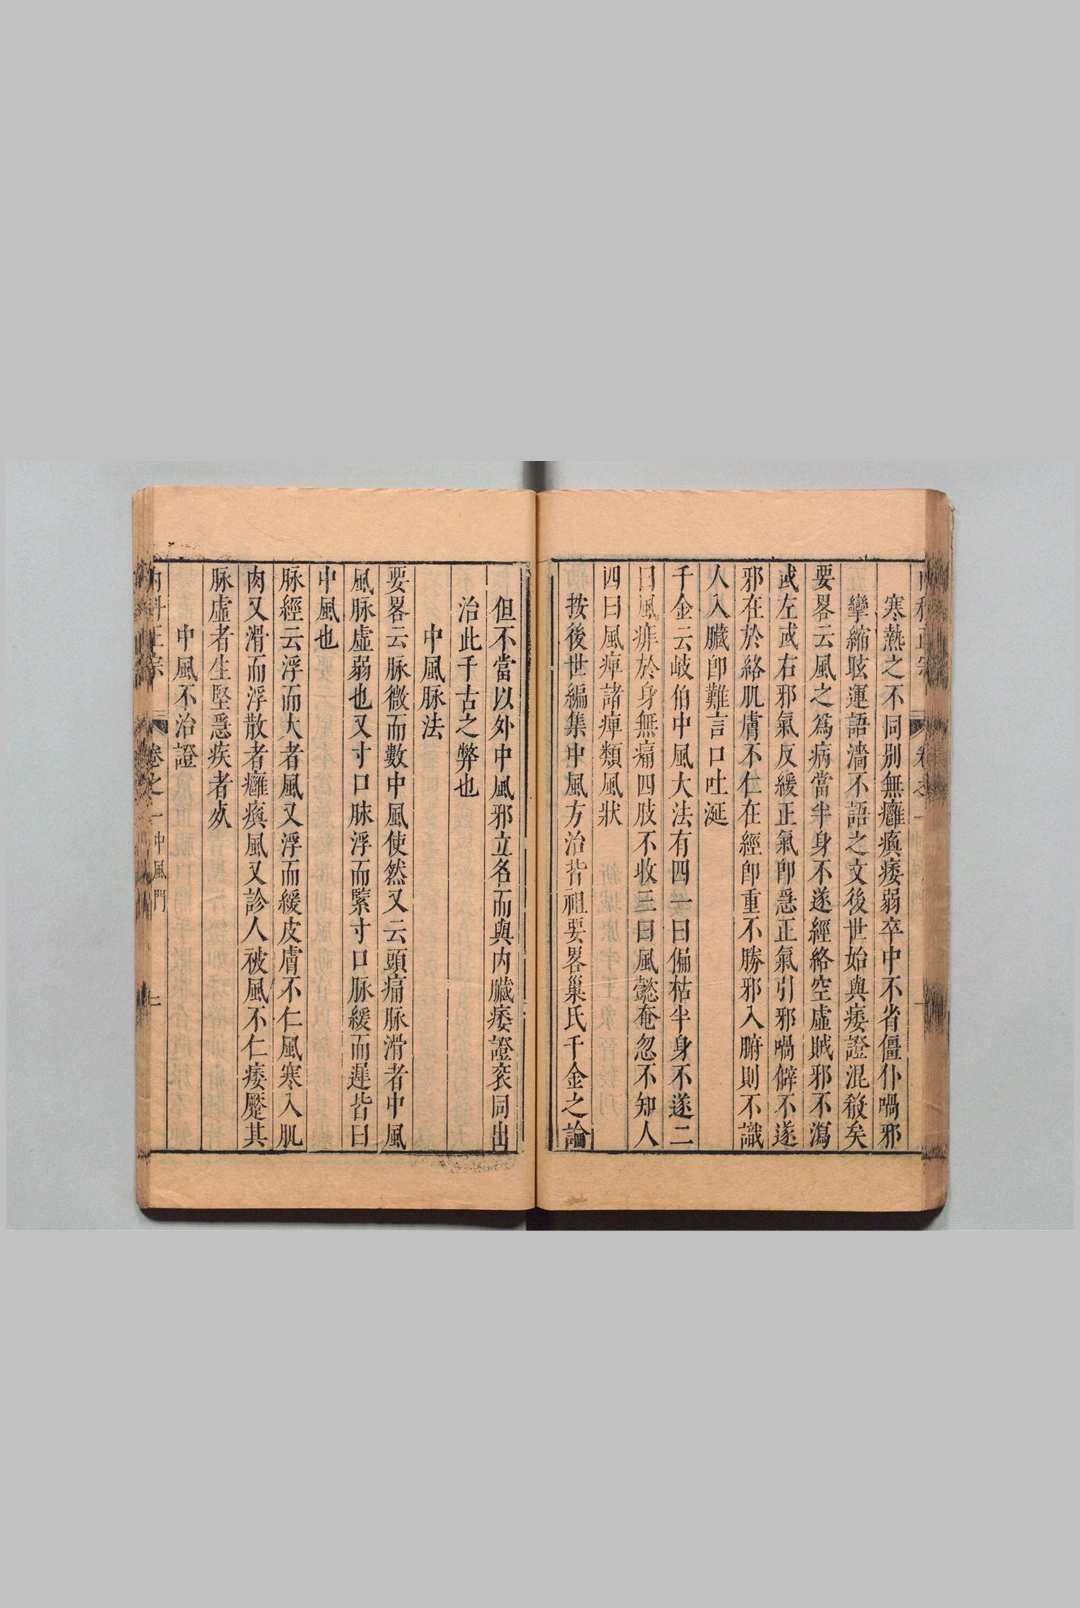 寒熱之不同別無癱瘓痿弱卒中不省僵仆喎邪
攣縮眩運語濇不語之文後世始與痿證混殽矣
要畧云風之爲病當半身不遂經絡空虛賊邪不瀉
或左或右邪氣反緩正氣卽急正氣引邪喎僻不遂
邪在於絡肌膚不仁在經卽重不勝邪入腑則不識
人入臟卽難言口吐涎
千金云岐伯中風大法有四一曰偏枯半身不遂二
曰風痱於身無痛四肢不收三曰風懿奄忽不知人
四曰風痺諸痺類風狀
按後世編集中風方治皆祖要畧巢氏千金之論
但不當以外中風邪立名而與内臟痿證衮同出
治此千古之弊也
中風脉法
要畧云脉微而數中風使然又云頭痛脉滑者中風
風脉虛弱也又寸口脉浮而緊寸口脉緩而遲皆曰
中風也
脉經云浮而大者風又浮而緩皮膚不仁風寒入肌
肉又滑而浮散者癱瘓風又診人被風不仁痿蹷其
脉虛者生堅急疾者死
中風不治證
内科正宗 卷之一中風門 二